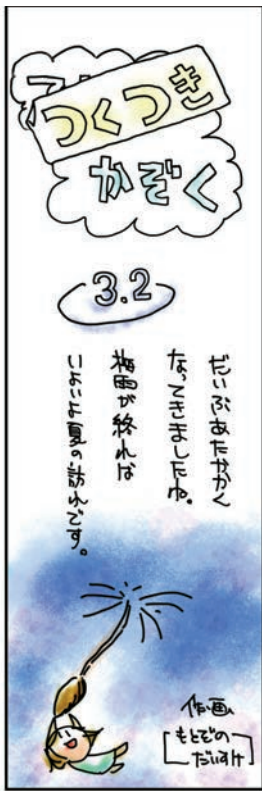 つくつき
かぞく
3.2
だいぶあたたかく
なってきましたね。
梅雨が終れば
いよいよ夏の訪れです。
作・画、
もとぞの
だいすけ